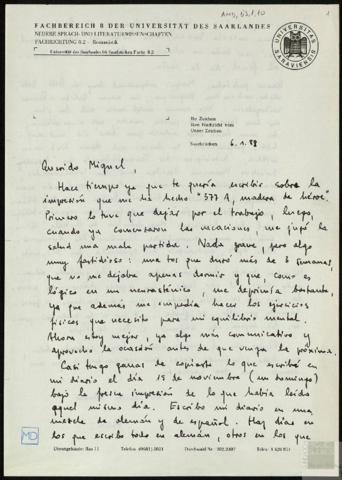 AMB, 03.1.10
1
FACHBEREICH 8 DER UNIVERSITÄT DES SAARLANDES
NEUERE SPRACH- UND LITERATURWISSENSCHAFTEN
FACHRICHTUNG 8.2 - Romanistik
Universität des Saarlandes 66 Saarbrücken Fachr. 8.2
UNIVERSITAS SARAVIENSIS
Ihr Zeichen
Ihre Nachricht vom
Unser Zeichen
Saarbrücken 6.1.88
Querido Miguel,
Hace tiempo ya que te quería escribir sobre la
impresión que me ha hecho "377 A, madera de héroe".
Primero lo tuve que dejar por el trabajo, luego,
cuando ya comenzaron las vacaciones, me jugó la
salud una mala partida. Nada grave, pero algo
muy fastidioso: una tos que duró más de 6 semanas,
que no me dejaba apenas dormir y que, como es
lógico en un neurasténico, me deprimía bastante,
ya que además me impedía hacer los ejercicios
físicos que necesito para mi equilibrio mental.
Ahora estoy mejor, ya algo más comunicativo y
aprovecho la ocasión antes de que venga la próxima.
Casi tengo ganas de copiarte lo que escribí en
mi diario el día 15 de noviembre (un domingo)
bajo la fresca impresión de lo que había leído
aquel mismo día. Escribo mi diario en una
mezcla de alemán y de español. Hay días en
los que escribo todo en alemán, otros en los que
MD
Telefon (0681) 3021
Durchwahl Nr. 302